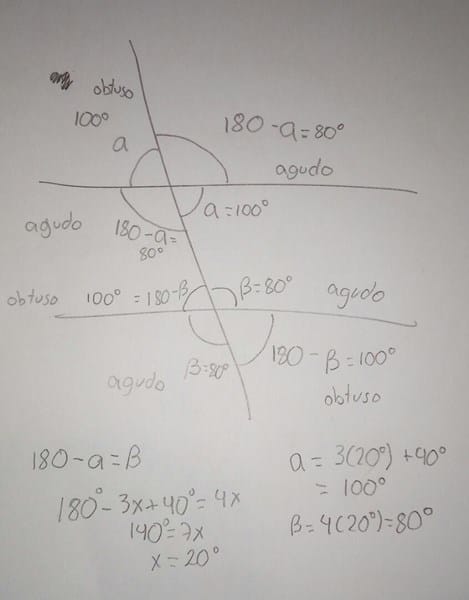 obtuso
100°
a
180 - a = 80°
agudo
a = 100°
agudo
180 - a =
80°
obtuso 100° = 180 - β
β = 80°
agudo
β = 80°
agudo
180 - β = 100°
obtuso
180 - a = β
180° - 3x + 40° = 4x
140° = 7x
x = 20°
a = 3(20°) + 40°
= 100°
β = 4(20°) = 80°